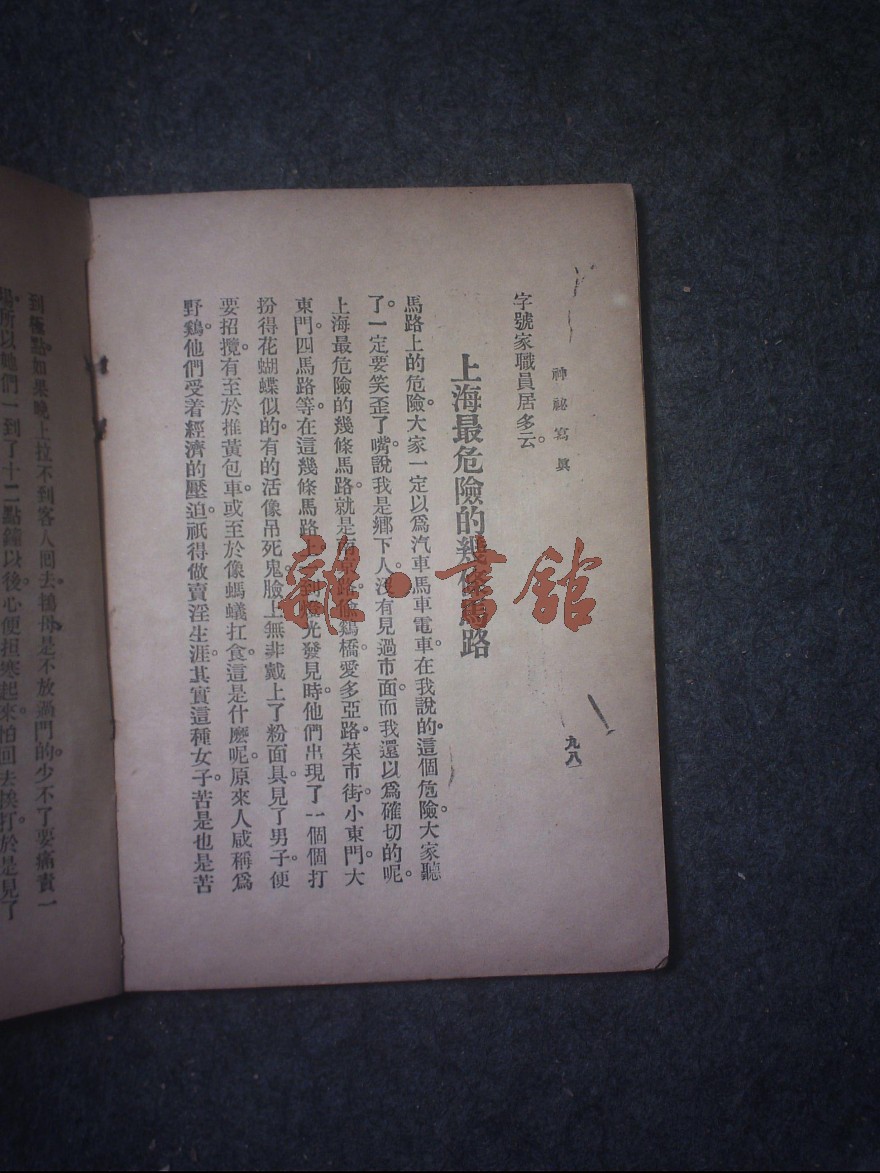 神祕寫眞
九八
字號家職員居多云。
上海最危險的幾條馬路
馬路上的危險大家一定以爲汽車馬車電車在我說的。這個危險大家聽
了。一定要笑歪了嘴說我是鄉下人沒有見過市面而我還以爲確切的呢。
上海最危險的幾條馬路。就是南京路偷鷄橋愛多亞路菜市街小東門大
東門。四馬路等在這幾條馬路上到燈光發見時他們出現了一個個打
扮得花蝴蝶似的。有的活像吊死鬼。臉上無非戴上了粉面具見了男子便
要招攬。有至於推黃包車。或至於像螞蟻扛食這是什麼呢。原來人咸稱爲
野鷄他們受着經濟的壓迫。祇得做賣淫生涯其實這種女子苦是也是苦
到極點如果晚上拉不到客人回去。鴇母是不放過門的少不了要痛責一
場。所以她們一到了十二點鐘以後。心便担寒起來怕回去挨打。於是見了
雜·書館